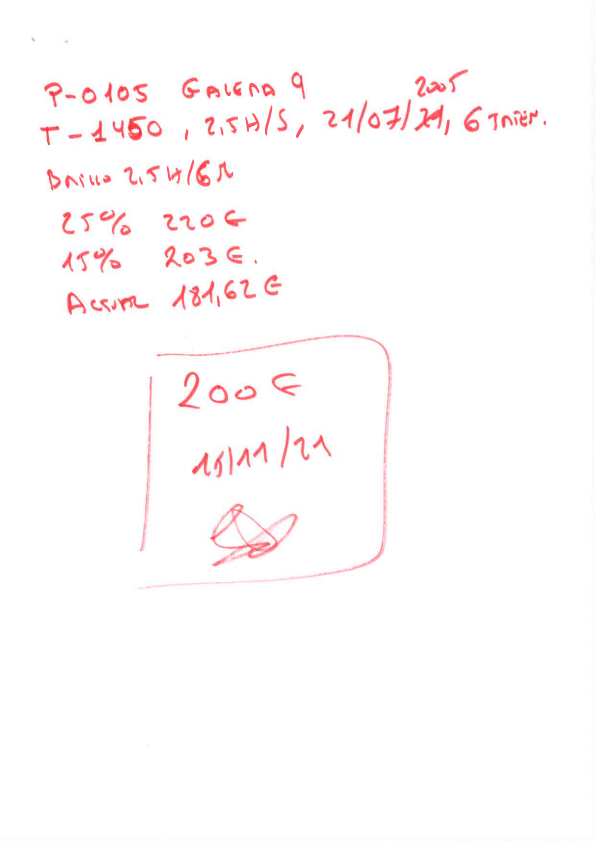 P-0105 GALERA 9
2005
T-1450, 2,5H/S, 21/07/21, 6 TRIEN.
BRILLO 2,5H/6M
25% 220€
15% 203€.
ACTUAL 181,62€
200€
15/11/21